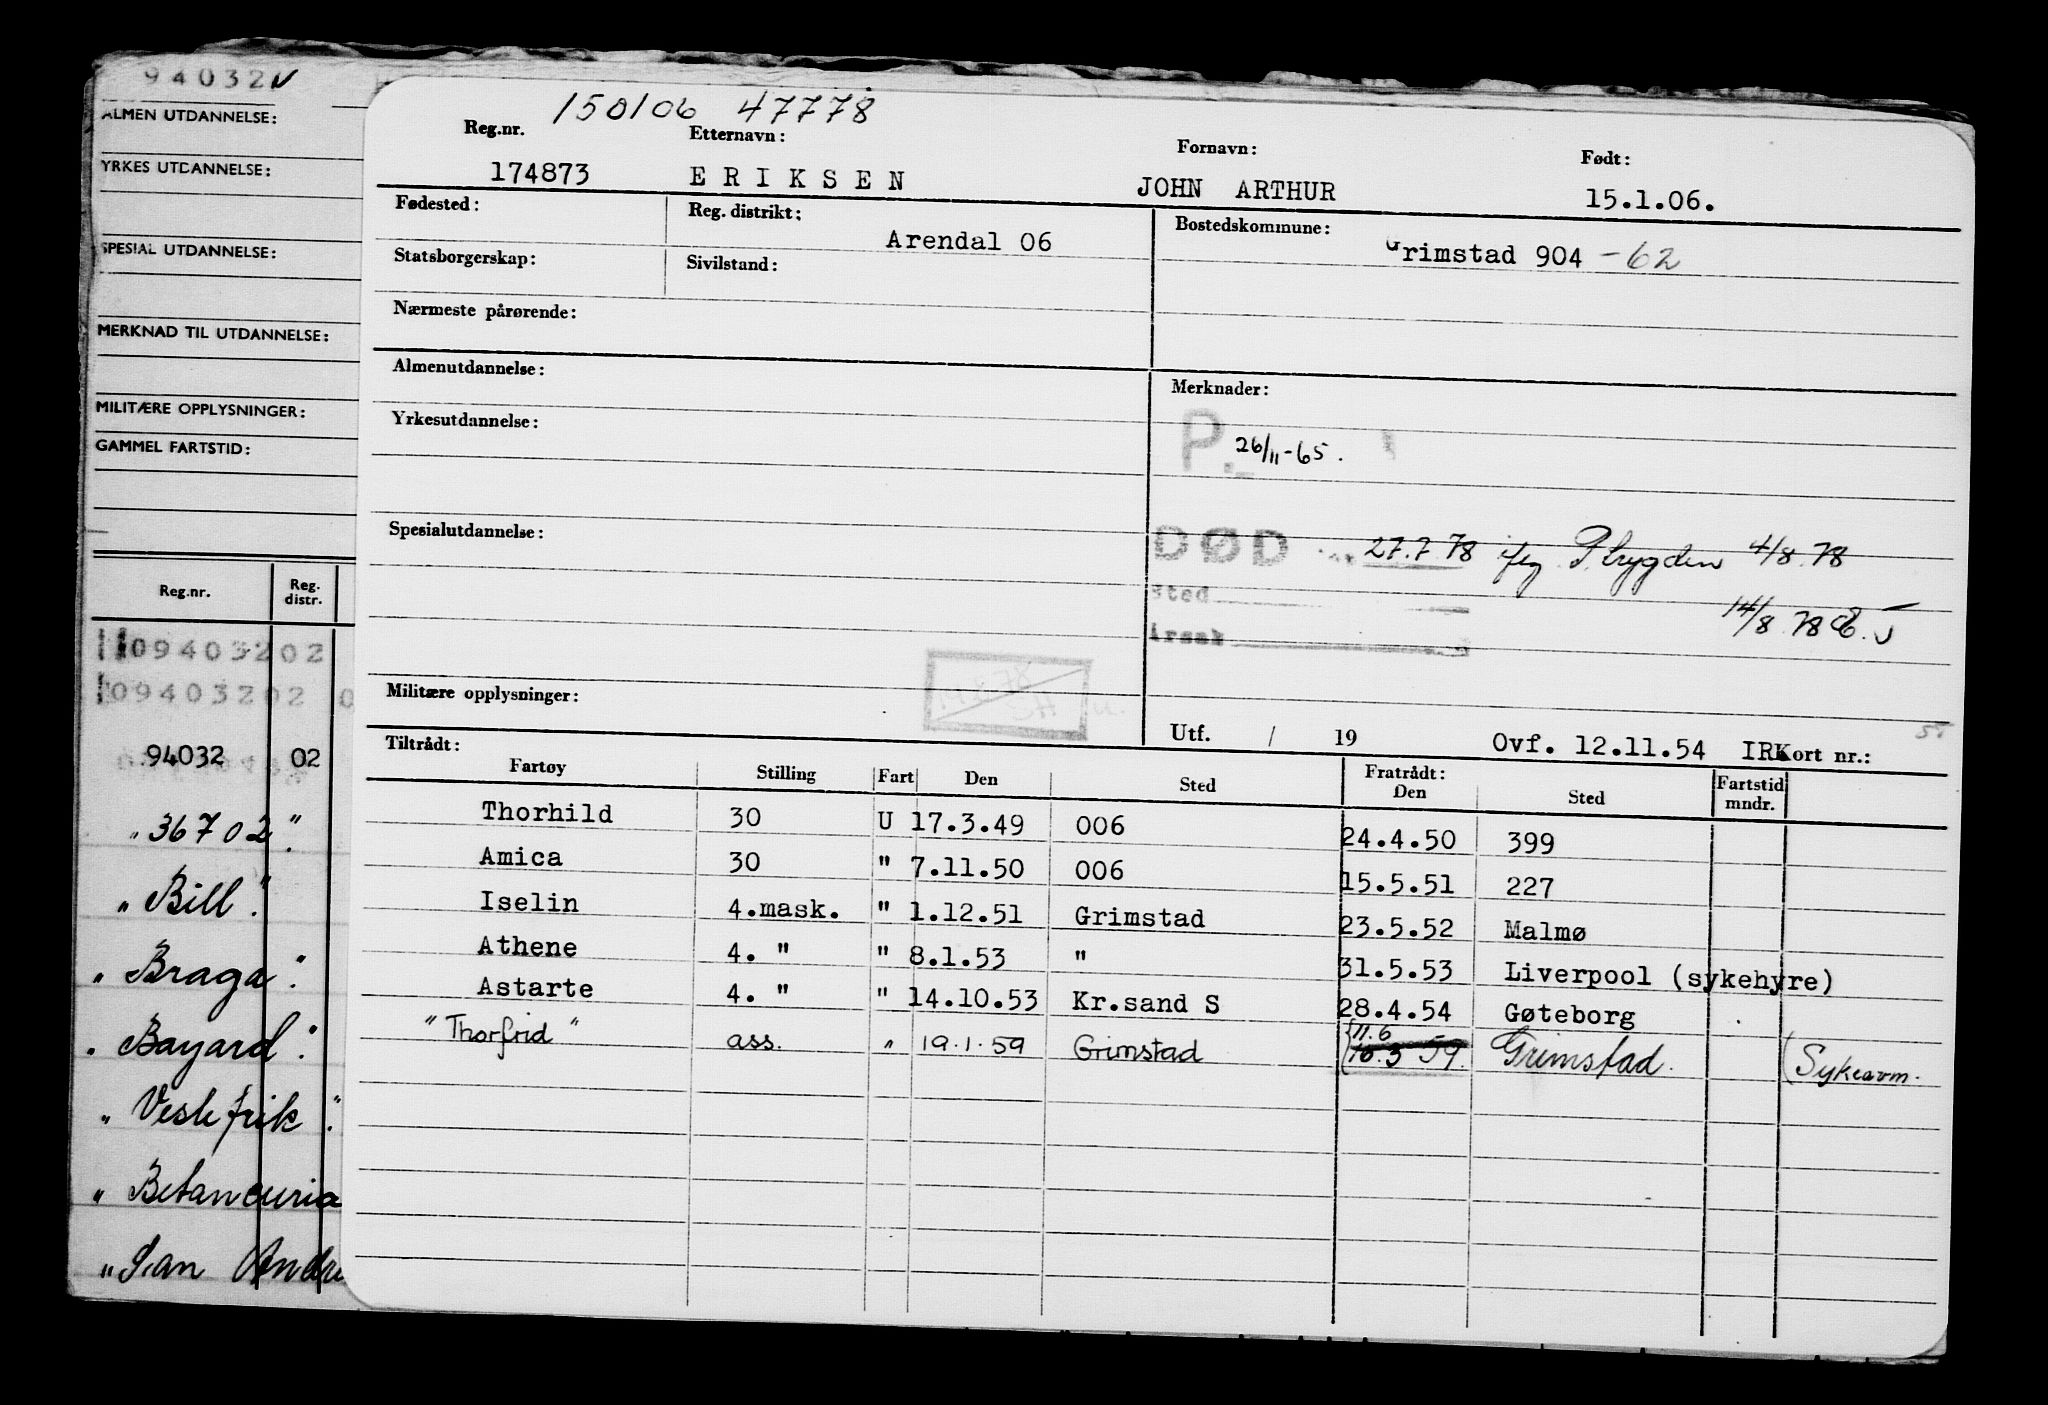 94032
ALMEN UTDANNELSE:
YRKES UTDANNELSE:
SPESIAL UTDANNELSE:
MERKNAD TIL UTDANNELSE:
MILITÆRE OPPLYSNINGER:
GAMMEL FARTSTID:
Reg.nr. Reg. distr.
09403202
09403202 0
94032 02
"36702".
"Bill".
"Braga".
"Bayard".
"Veslefrik".
"Betancuria
"San Andre
150106 47778
Reg.nr. Etternavn: Fornavn: Født:
174873 ERIKSEN JOHN ARTHUR 15.1.06.
Fødested: Reg. distrikt: Arendal 06 Bostedskommune: Grimstad 904 -62
Statsborgerskap: Sivilstand:
Nærmeste pårørende:
Almenutdannelse: Merknader:
Yrkesutdannelse: P. 26/11-65.
Spesialutdannelse: DØD 27.7.78 iflg P. trygden 4/8.78
sted 14/8.78
årsak
Militære opplysninger:
Utf. / 19 Ovf. 12.11.54 IR Kort nr.: 55
Tiltrådt: Fratrådt:
Fartøy Stilling Fart Den Sted Den Sted Fartstid mndr.
Thorhild 30 U 17.3.49 006 24.4.50 399
Amica 30 " 7.11.50 006 15.5.51 227
Iselin 4.mask. " 1.12.51 Grimstad 23.5.52 Malmø
Athene 4. " " 8.1.53 " 31.5.53 Liverpool (sykehyre)
Astarte 4. " " 14.10.53 Kr.sand S 28.4.54 Gøteborg
"Thorfrid" ass. " 19.1.59 Grimstad 11.6 10.3 59. Grimstad. (Sykeavm.